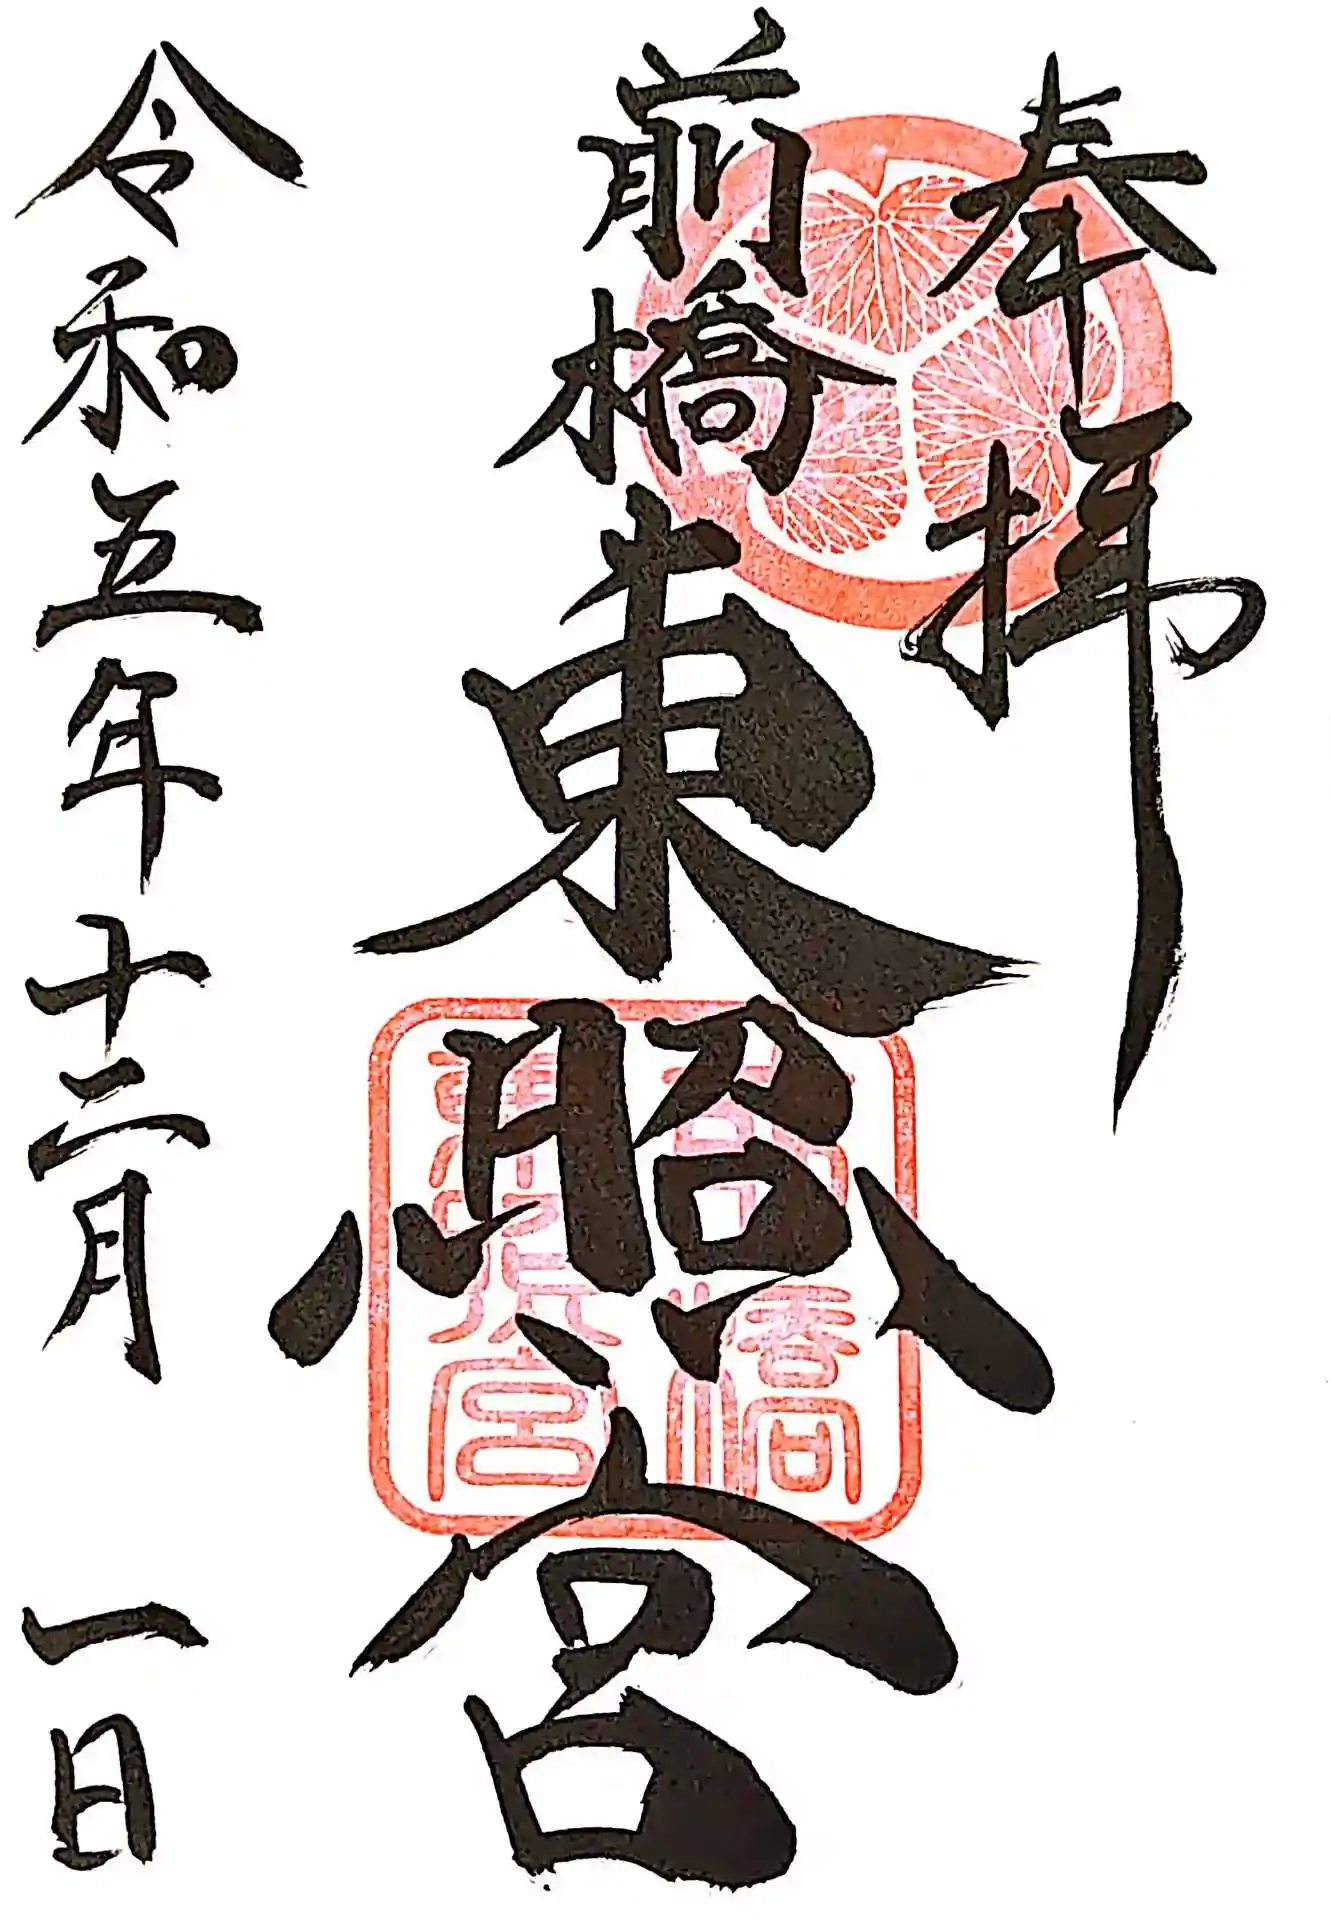 奉拝
前橋東照宮
前橋
東照宮
令和五年十二月 一日